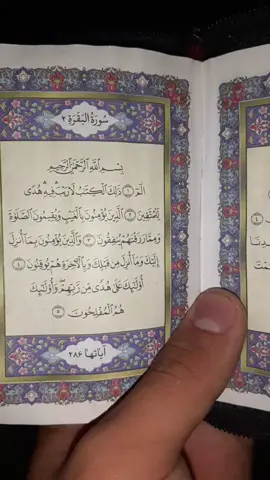 سُورَةُ الْبَقَرَةِ ٢
بِسْمِ اللَّهِ الرَّحْمَٰنِ الرَّحِيمِ
الٓمٓ ١ ذَٰلِكَ الْكِتَٰبُ لَا رَيْبَ فِيهِ هُدًى
لِّلْمُتَّقِينَ ٢ الَّذِينَ يُؤْمِنُونَ بِالْغَيْبِ وَيُقِيمُونَ الصَّلَوٰةَ
وَمِمَّا رَزَقْنَٰهُمْ يُنفِقُونَ ٣ وَالَّذِينَ يُؤْمِنُونَ بِمَا أُنزِلَ
إِلَيْكَ وَمَا أُنزِلَ مِن قَبْلِكَ وَبِالْآخِرَةِ هُمْ يُوقِنُونَ ٤
أُولَٰئِكَ عَلَىٰ هُدًى مِّن رَّبِّهِمْ وَأُولَٰئِكَ
هُمُ الْمُفْلِحُونَ ٥
آيَاتُهَا ٢٨٦